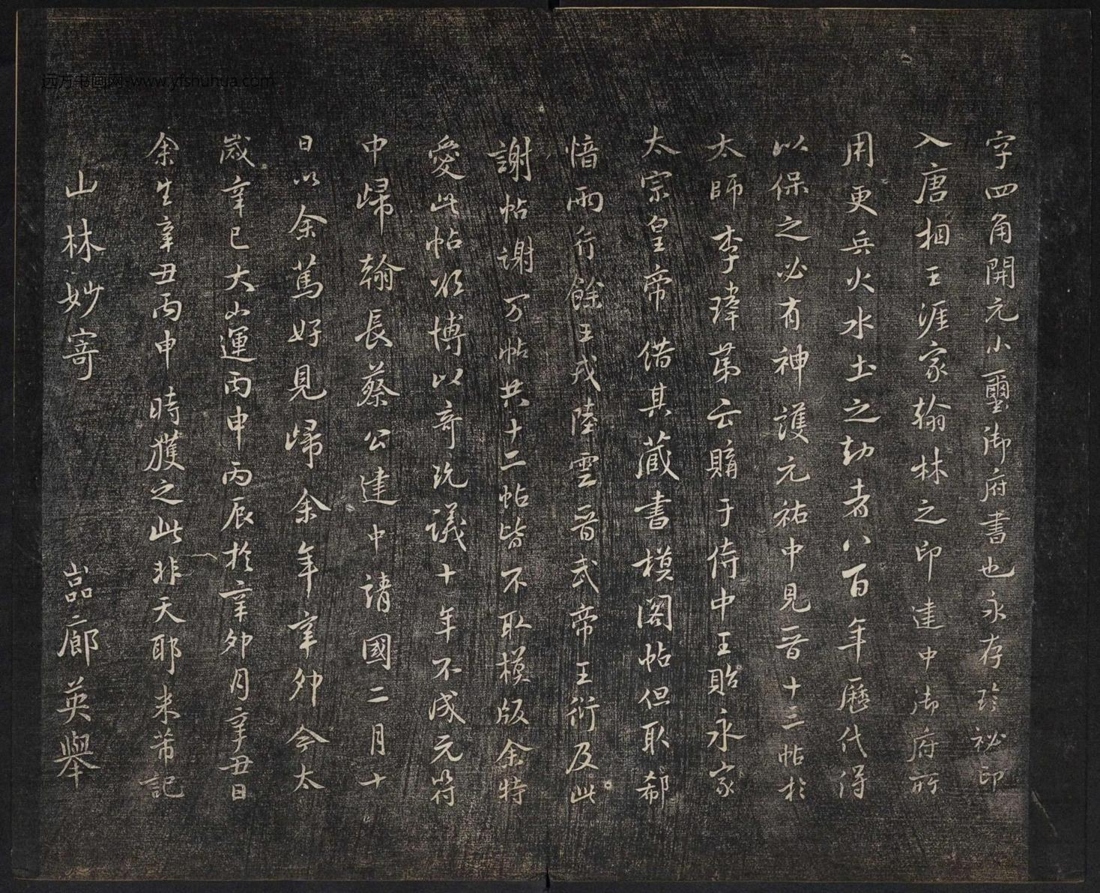 字四角開元小璽御府書也永存珍祕印
入唐相王涯家翰林之印建中御府所
用更兵火水土之劫者八百年歷代得
以保之必有神護元祐中見晉十三帖於
太師李瑋第云購于侍中王貽永家
太宗皇帝借其藏書模閣帖但取郗
愔兩行餘王戎陸雲晉武帝王衍及此
謝帖謝万帖共十二帖皆不取模版余特
愛此帖欲博以奇玩議十年不成元符
中歸翰長蔡公建中靖國二月十
日以余篤好見歸余年辛卯今太
歲辛巳大小運丙申丙辰於辛卯月辛丑日
余生辛丑丙申時獲之此非天耶米芾記
山林妙寄 巖廊英舉
四方书画网 www.yfshuhua.com